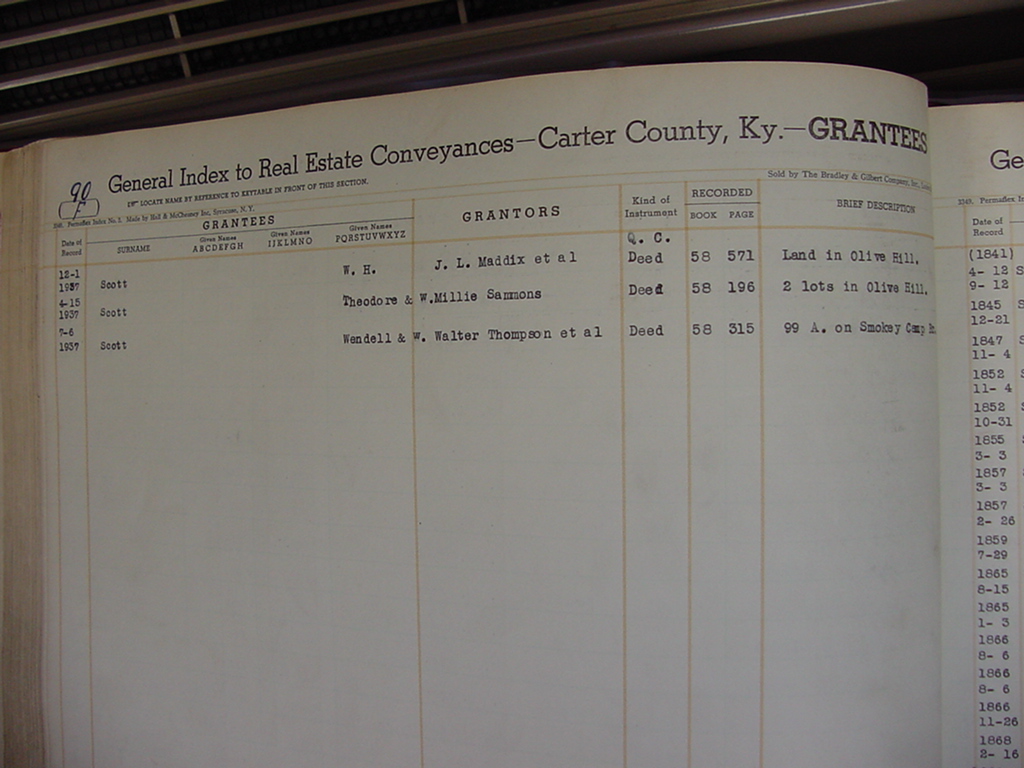 General Index to Real Estate Conveyances—Carter County, Ky.—GRANTEES
90
F
LOCATE NAME BY REFERENCE TO KEYTABLE IN FRONT OF THIS SECTION.
Sold by The Bradley & Gilbert Company, Inc.
Permaflex Index No. 3. Made by Hall & McChesney Inc. Syracuse, N. Y.
GRANTEES GRANTORS Kind of Instrument RECORDED BOOK PAGE BRIEF DESCRIPTION
Date of Record SURNAME Given Names ABCDEFGH Given Names IJKLMNO Given Names PQRSTUVWXYZ
Q. C.
12-1
1937 Scott W. H. J. L. Maddix et al Deed 58 571 Land in Olive Hill.
4-15
1937 Scott Theodore & W. Millie Sammons Deed 58 196 2 lots in Olive Hill.
7-6
1937 Scott Wendell & W. Walter Thompson et al Deed 58 315 99 A. on Smokey Camp
Ge
3243. Permaflex
Date of Record
(1841)
4- 12 S
9- 12
1845 S
12-21
1847 S
11- 4
1852 S
11- 4
1852 S
10-31
1855
3- 3
1857
3- 3
1857
2- 26
1859
7-29
1865
8-15
1865
1- 3
1866
8- 6
1866
8- 6
1866
11-26
1868
2- 16